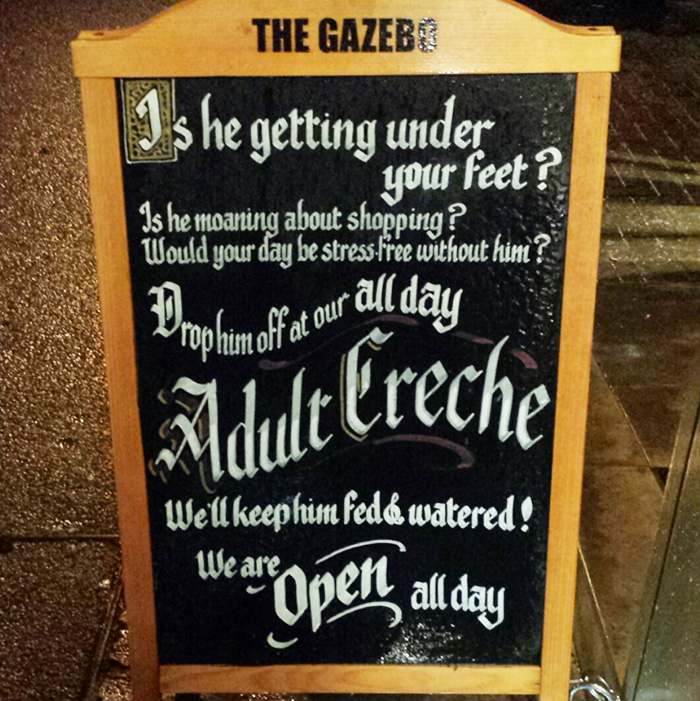 THE GAZEBO
Is he getting under
your feet?
Is he moaning about shopping?
Would your day be stress-free without him?
Drop him off at our all day
Adult Creche
We'll keep him fed & watered!
We are Open all day